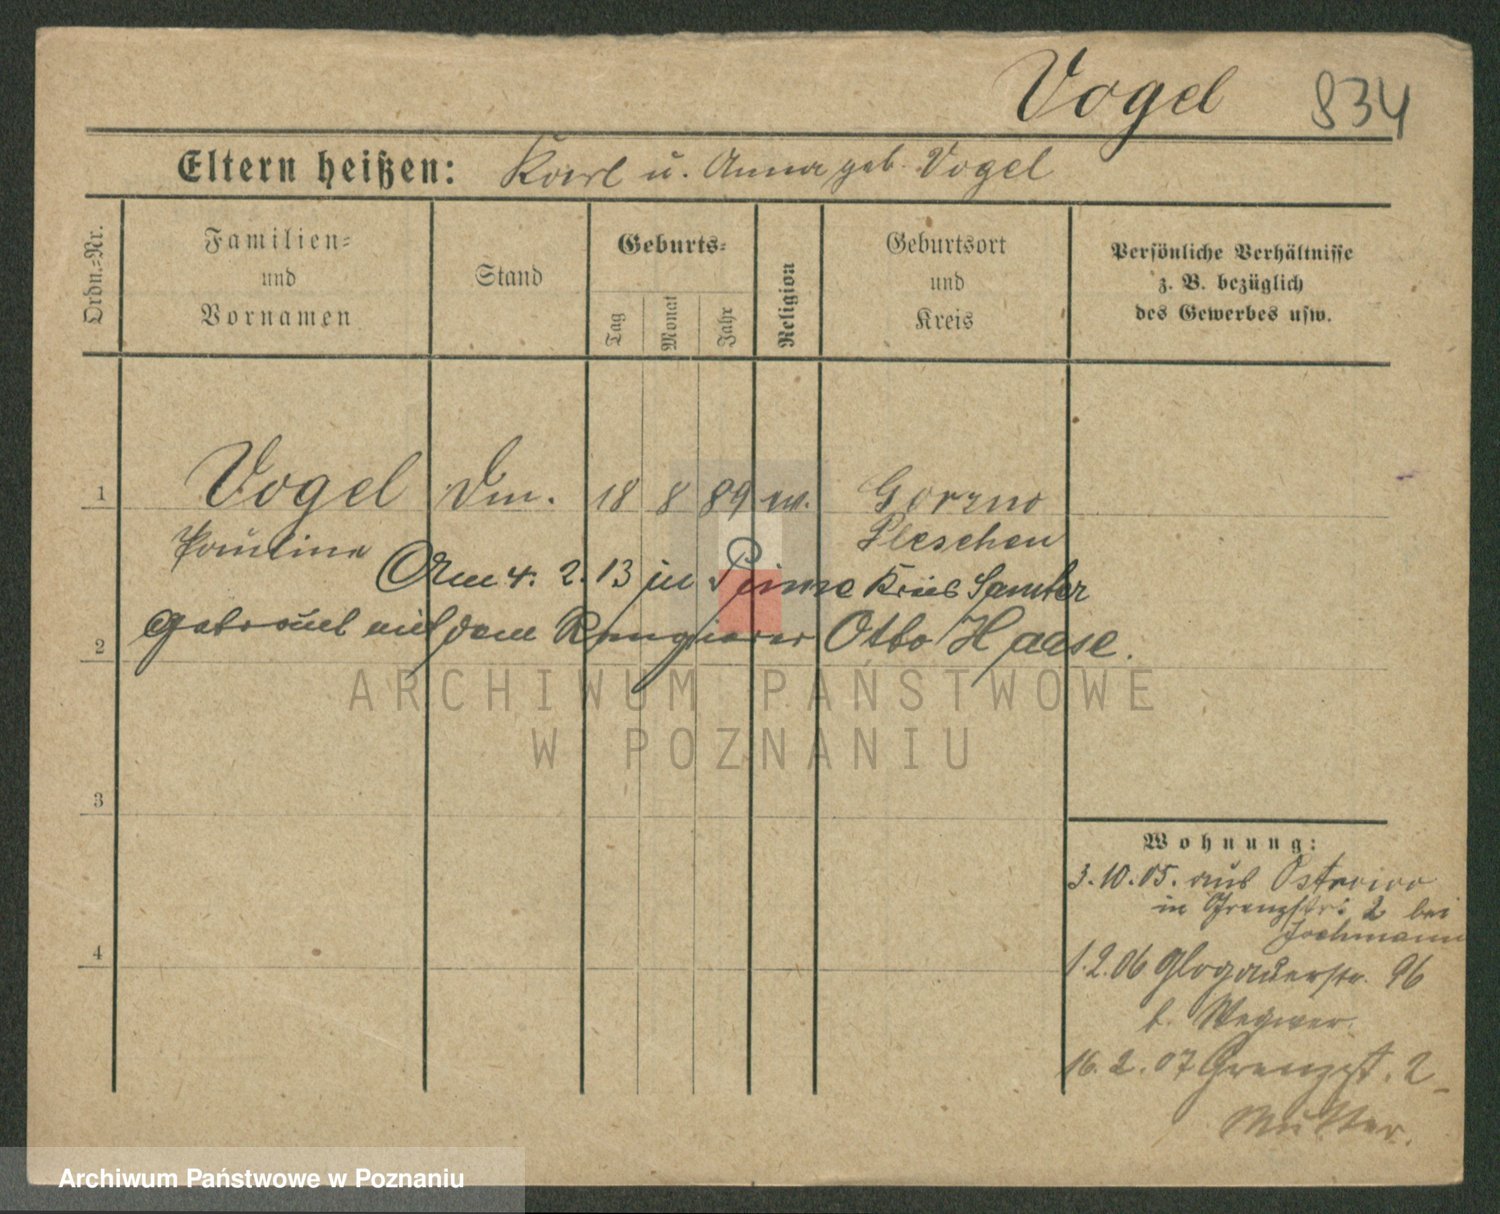 Vogel 834
Eltern heißen: Karl u. Anna geb. Vogel
Ordn.-Nr.
Familien-
und
Vornamen
Stand
Geburts-
Tag
Monat
Jahr
Religion
Geburtsort
und
Kreis
Persönliche Verhältnisse
z. B. bezüglich
des Gewerbes usw.
1 Vogel 18 8 89 Gorzno
Pauline Pleschen
Am 4. 2. 13 in Peime Kreis Samter
getraut mit dem Rangierer Otto Haase.
2
3
4
Wohnung:
3.10.05. aus Ostrowo
in Grenzstr. 2 bei
Jochmann
1.2.06 Glogauerstr. 96
b. Wegner.
16.2.07 Grenzst. 2
Mutter.
ARCHIWUM PAŃSTWOWE
W POZNANIU
Archiwum Państwowe w Poznaniu